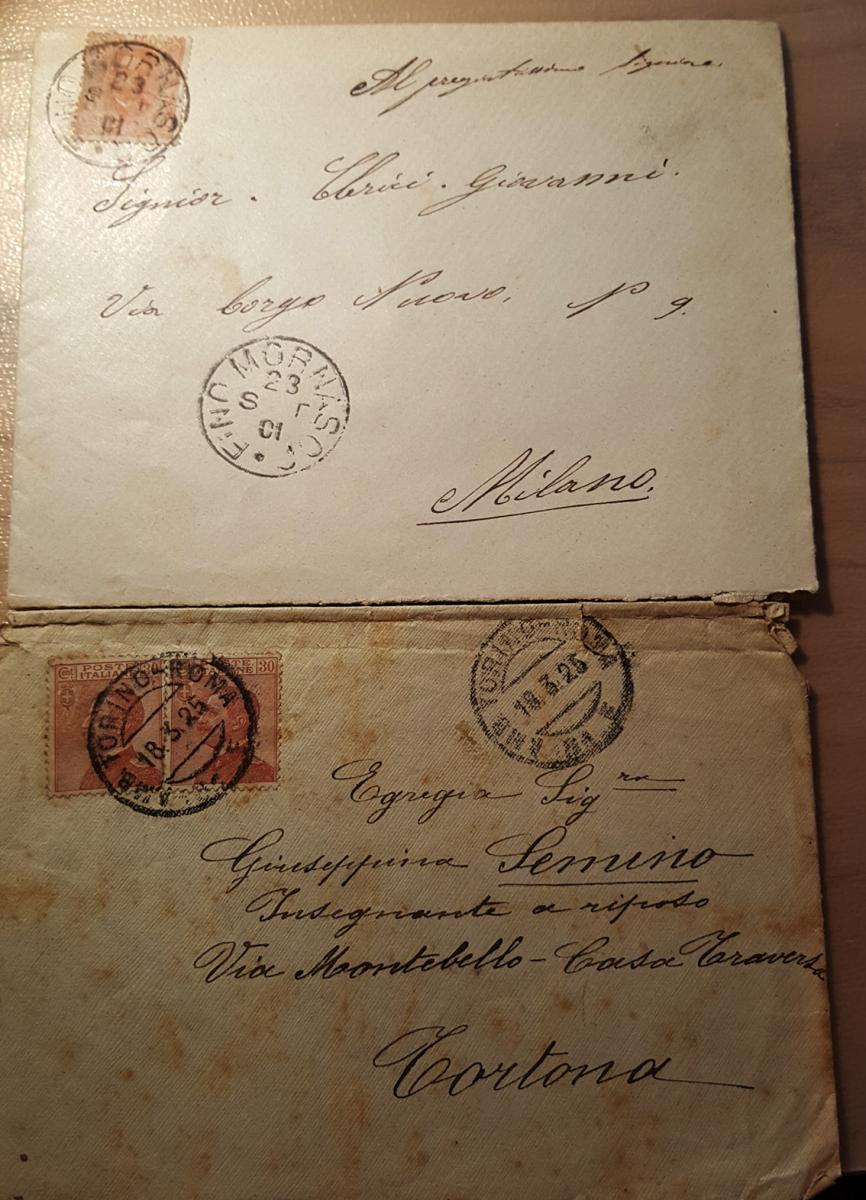 FINO MORNASCO
23
S T
01
Al pregiatissimo Signore.
Signior. Clerici. Giovanni.
Via borgo Nuovo. N 9.
FINO MORNASCO
23
S T
01
Milano.
POSTE ITALIANE 30
TORINO-ROMA
18.3.25
AMB
TORINO-ROMA
18.3.25
AMB
Egregia Sigra
Giuseppina Semino
Insegnante a riposo
Via Montebello - Casa Traversa
Tortona